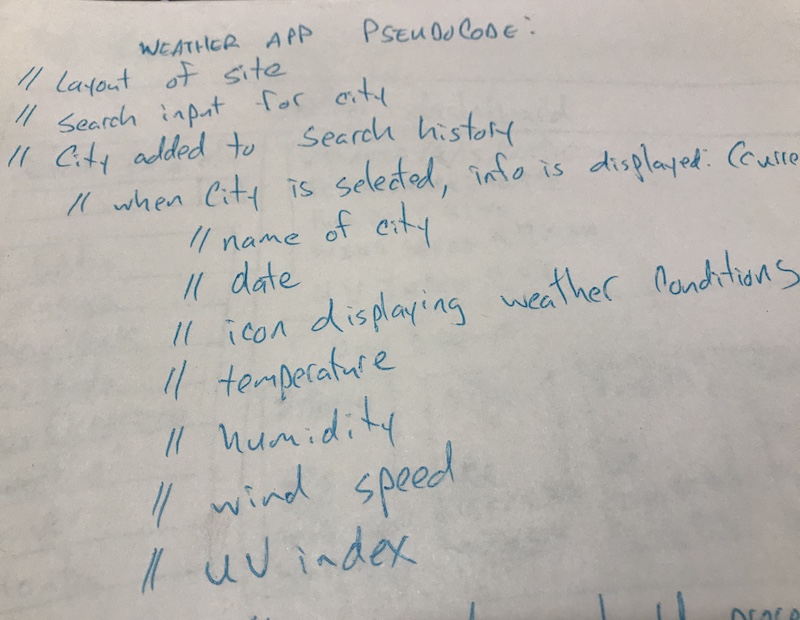 WEATHER APP PSEUDOCODE:
// Layout of site
// Search input for city
// City added to search history
// when City is selected, info is displayed: (curre
// name of city
// date
// icon displaying weather conditions
// temperature
// humidity
// wind speed
// UV index